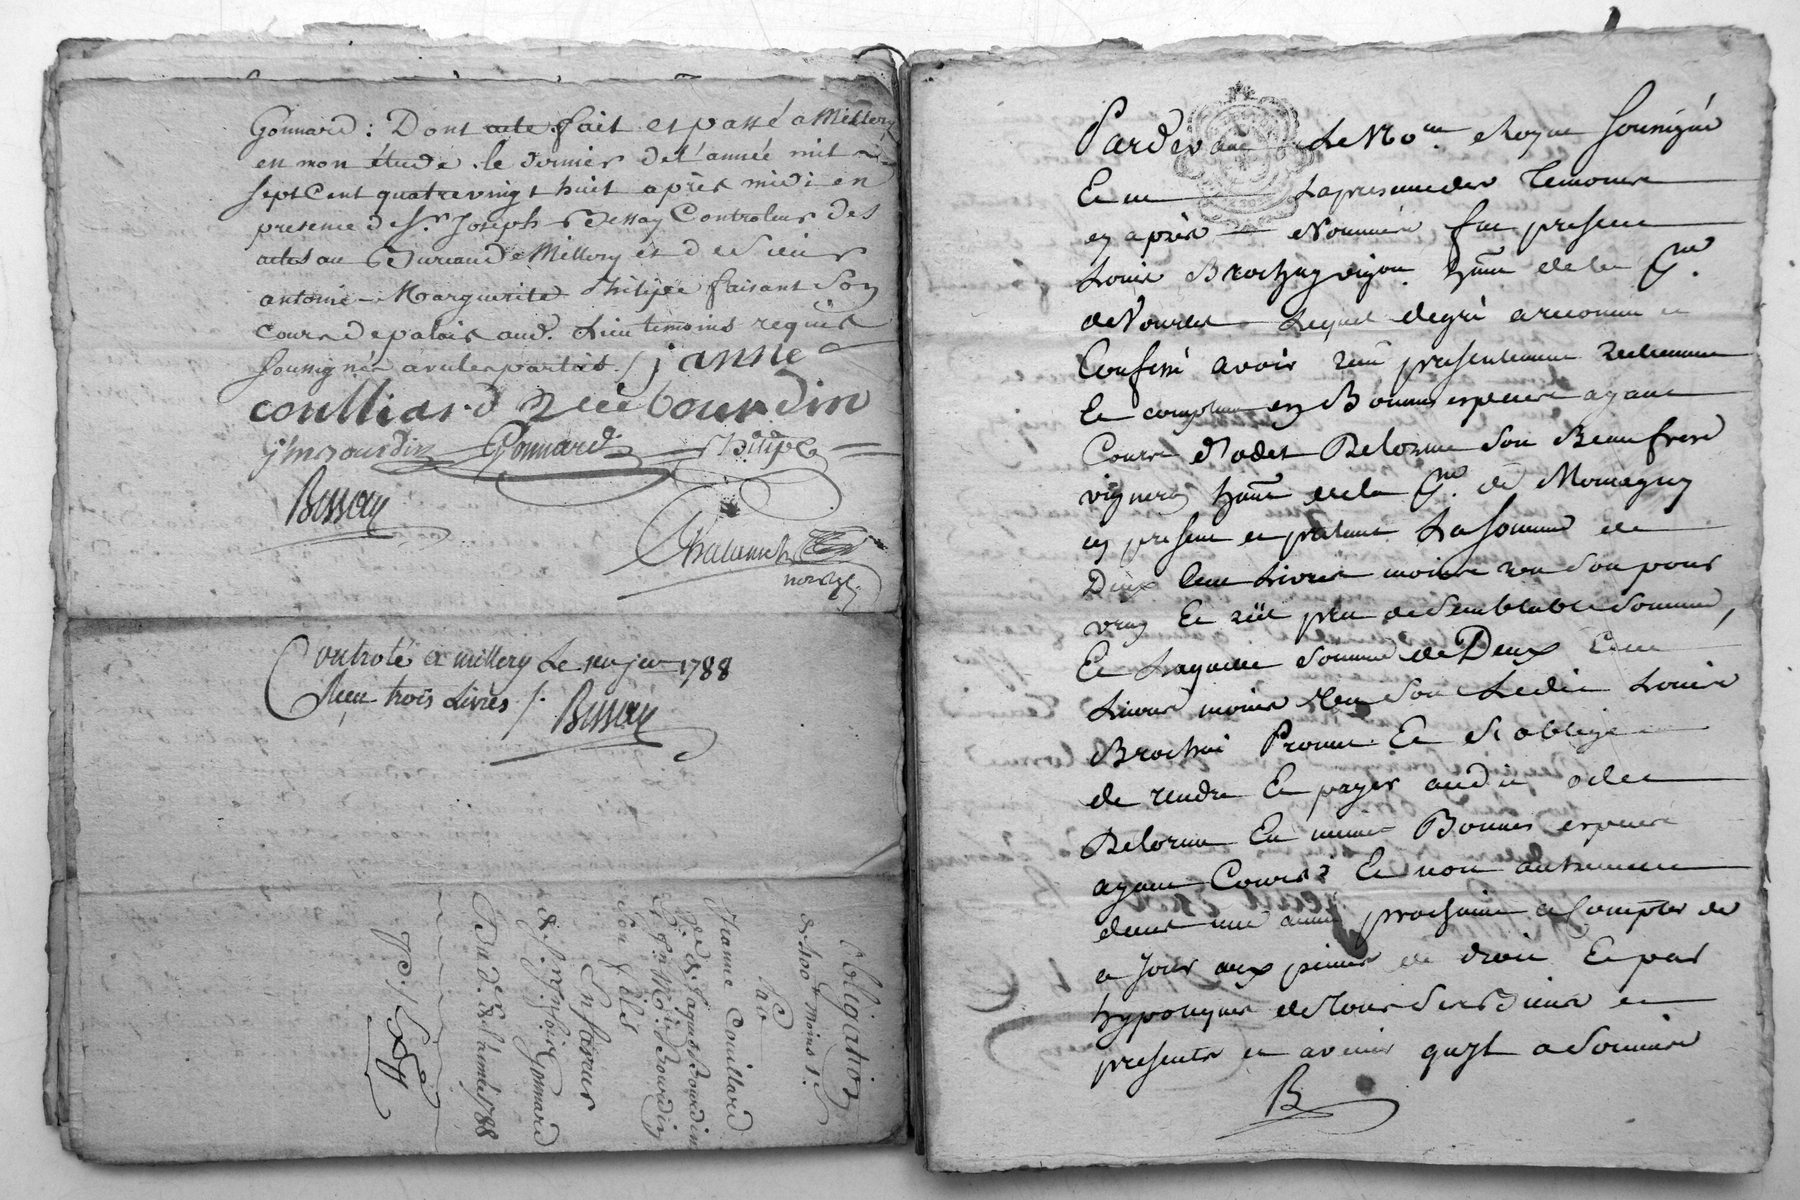 Gonnard : Dont acte fait et passé a Millery
en mon étude le dernier de l'année mil
sept Cent quatrevingt huit après midi en
presence de Sr. Joseph Bessay Controleur des
actes au Bureau de Millery et de Sieur
antoine Marguerite Philipe faisant Son
Cours de palais aud. Lieu temoins requis
Soussignés avec les parties / j anne
coulliard veuve bourdin
jm bourdin Gonnard Philipe
Bessay
notre
Controlé a millery Le jer 1788
Reçu trois Livres /. Bessay
obligation
de 400 moins 1s.
par
Jeanne Couillard
Ve de Jaques Bourdin
Et Jn M. Bourdin
Son fils
En faveur
de Sr. Gonnard
Du der. de l'année 1788
Pardevant Le No.re Royal Soussigné
Et en La presence des Temoins
cy après Nommés fut present
Louis Brochay vigon habt. de la Psse.
de Vourles Lequel degré a reconnu et
Confessé avoir reçu presentement reellement
Et comptant en Bonnes especes ayant
Cours d'odet Delorme Son Beaufrere
vigneron habt. de la Psse. de Montagny
cy present et pretant La Somme de
Deux Cent Livres moins un Sou pour
vray Et reel pret de Semblable Somme,
Et Laquelle Somme de Deux Cent
Livres moins un Sou Ledit Louis
Brochai Promet Et S'oblige
de rendre Et payer audit odet
Delorme En memes Bonnes especes
ayant Cours Et non autrement
dans une année prochaine a Compter de
ce Jour aux peines de droit Et par
hypoteques de tous Ses Biens
presents et avenir qu'il a Soumis
B